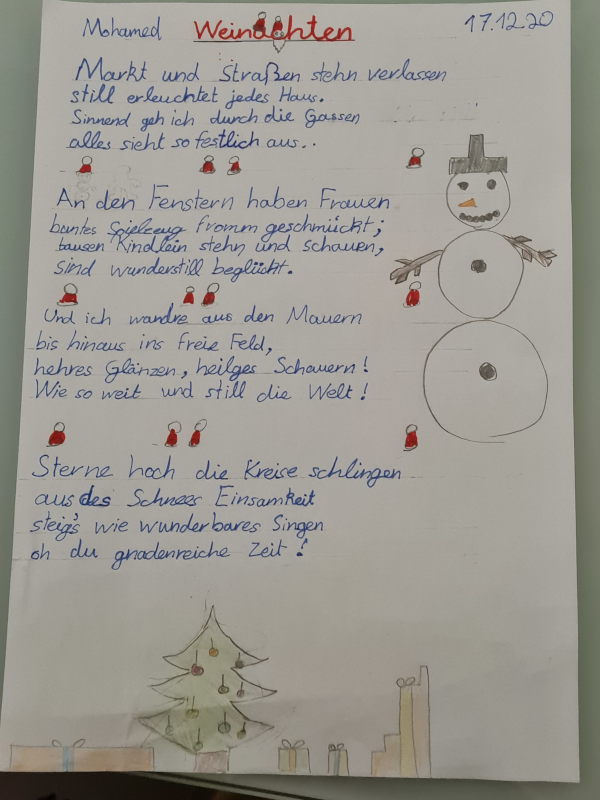 Mohamed Weinachten 17.12.20
Markt und Straßen stehn verlassen
still erleuchtet jedes Haus.
Sinnend geh ich durch die Gassen
alles sieht so festlich aus..
An den Fenstern haben Frauen
buntes Spielzeug fromm geschmückt;
tausen Kindlein stehn und schauen,
sind wunderstill beglückt.
Und ich wandre aus den Mauern
bis hinaus ins freie Feld,
hehres Glänzen, heilges Schauern!
Wie so weit und still die Welt!
Sterne hoch die Kreise schlingen
aus des Schnees Einsamkeit
steig's wie wunderbares Singen
oh du gnadenreiche Zeit!